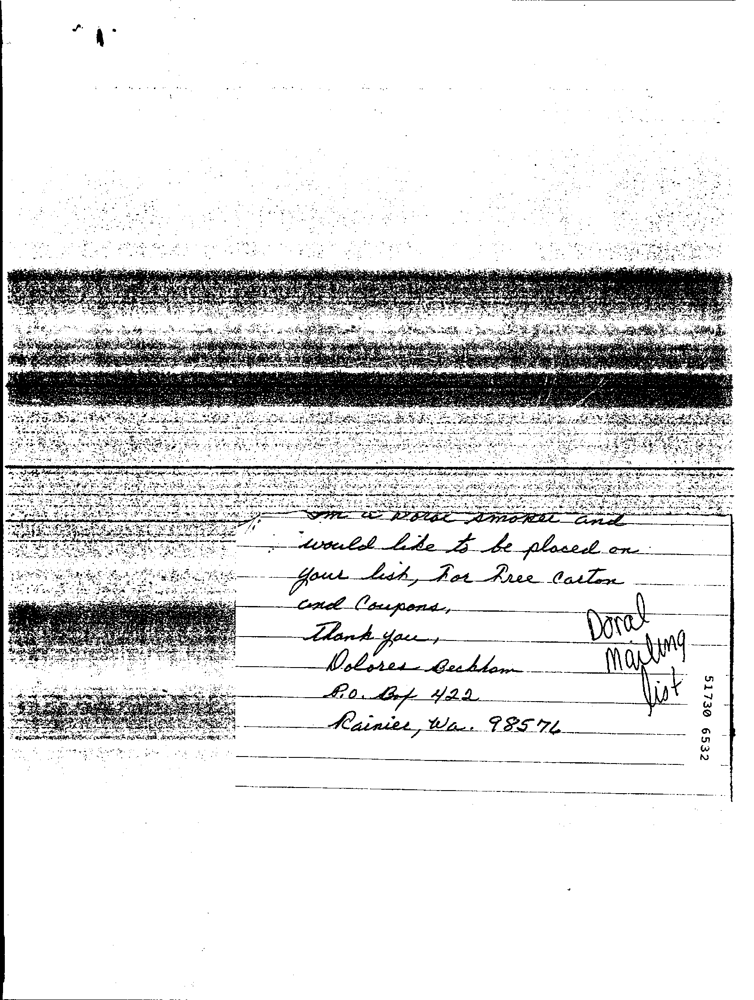 Im a Doral smoker and
would like to be placed on
your list, For Free Carton
and Coupons,
Thank you,
Dolores Beckham
P.O. Box 422
Rainier, Wa. 98576
Doral
Mailing
list
51730 6532